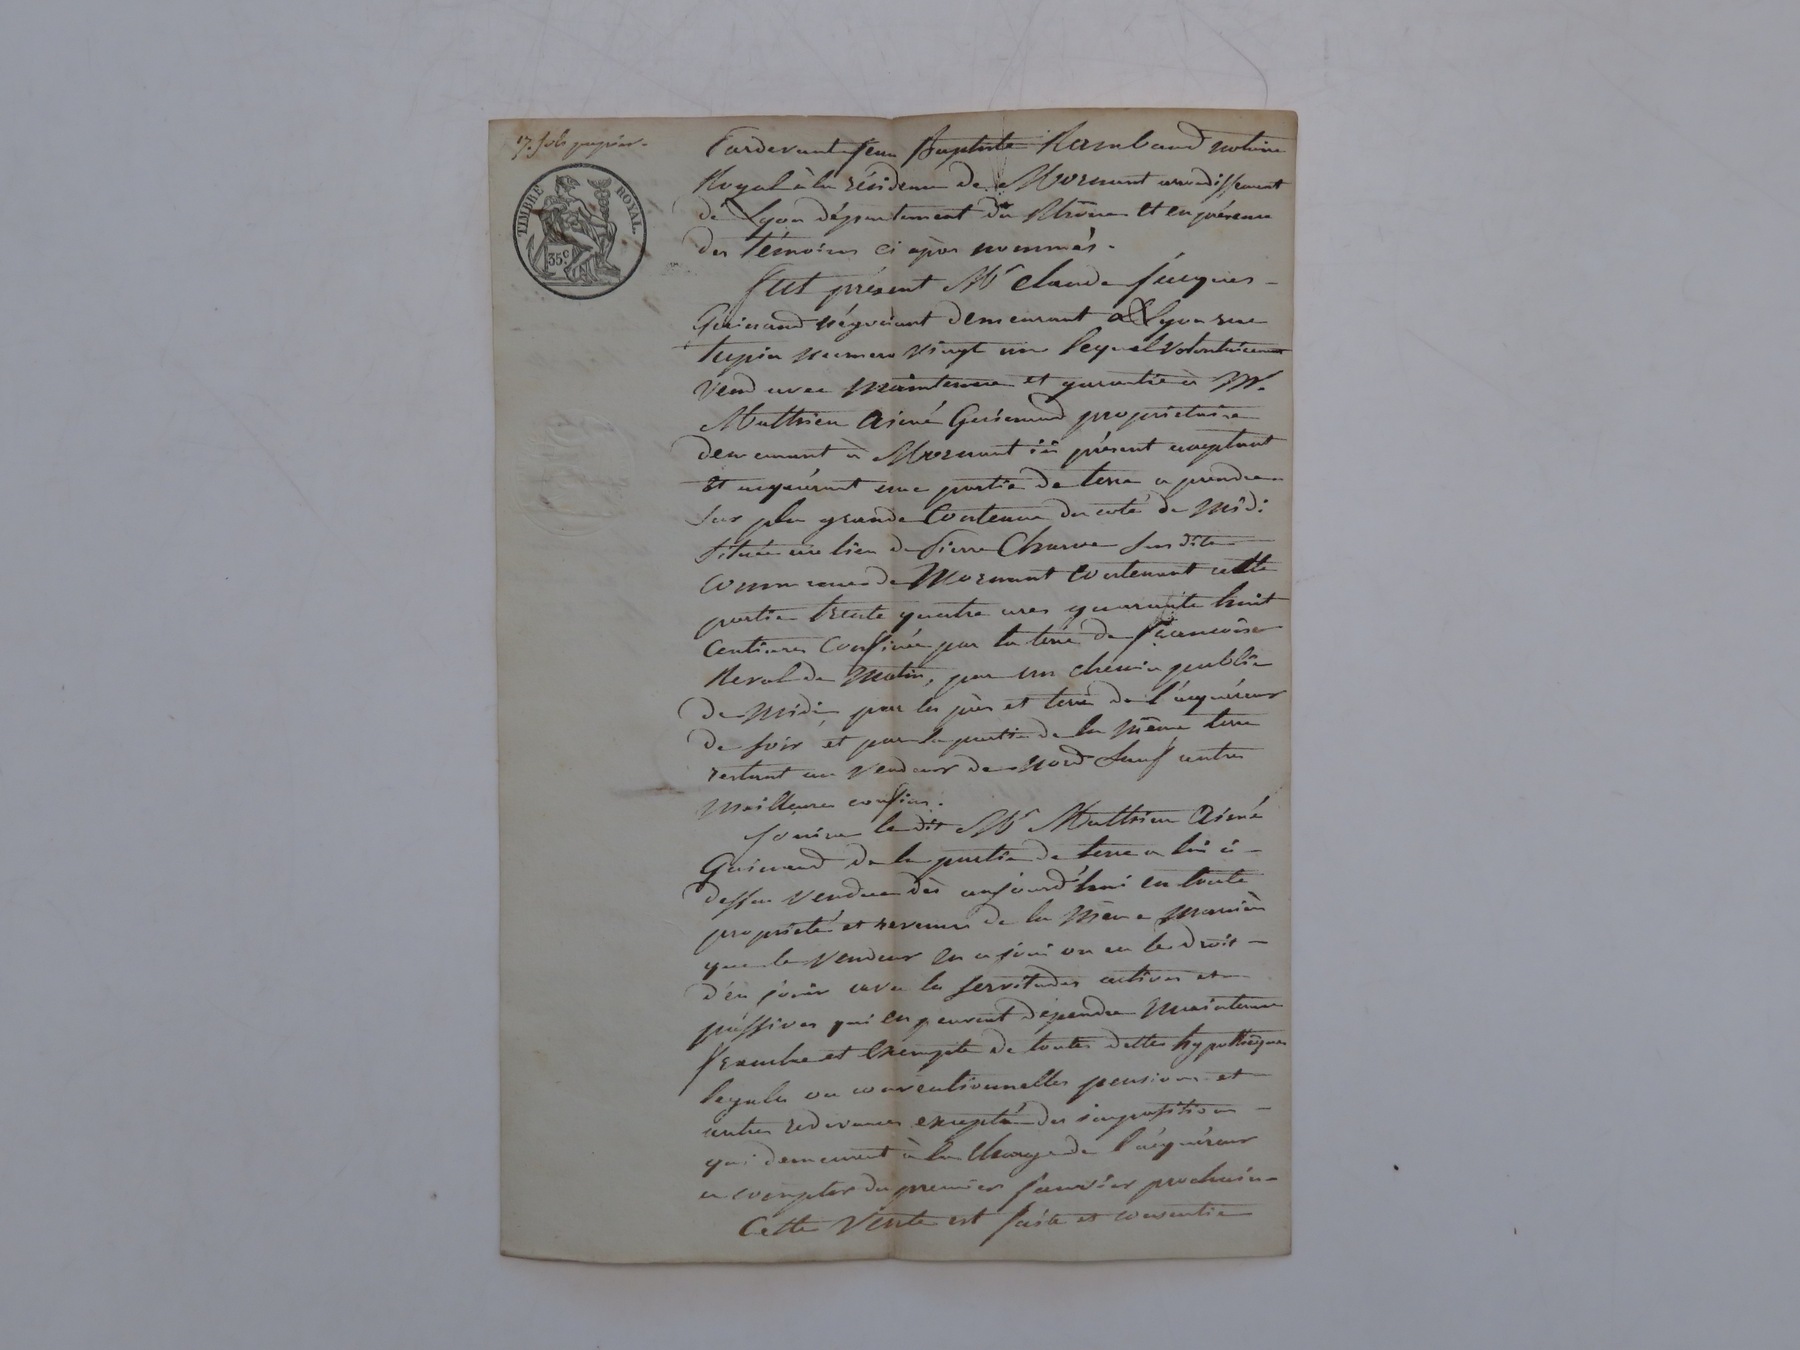 TIMBRE ROYAL.
35c
Pardevant Jean Baptiste Rambaud notaire
Royal à la résidence de Mornant arrondissement
de Lyon département du Rhône et en présence
des témoins ci après nommés.
Fut présent Mr Claude Jacques
Guinand négociant demeurant à Lyon rue
tupin numero vingt un lequel volontairement
vend avec maintenue et garantie à Mr
Matthieu Aimé Guinand propriétaire
demeurant à Mornant ici présent acceptant
et acquérant une partie de terre à prendre
sur plus grande contenue du coté de midi
située au lieu de Pierre Charve susdite
commune de Mornant contenant cette
partie trente quatre ares quarante huit
centiares confinée par la terre de Françoise
Reval de matin, par un chemin public
de midi, par les prés et terre de l'acquéreur
de soir et par la partie de la même terre
restant au vendeur de nord sauf autres
meilleurs confins.
Jouira le dit Mr Matthieu Aimé
Guinand de la partie de terre a lui ci-
dessus vendue dès aujourd'hui en toute
propriété et revenus de la même manière
que le vendeur en a joui ou eu le droit
d'en jouir avec les servitudes actives et
passives qui en peuvent dépendre maintenue
franche et exempte de toutes dettes hypothèques
légales ou conventionnelles pensions et
autres redevances excepté des impositions
qui demeurent à la charge de l'acquéreur
a compter du premier janvier prochain
Cette vente est faite et consentie